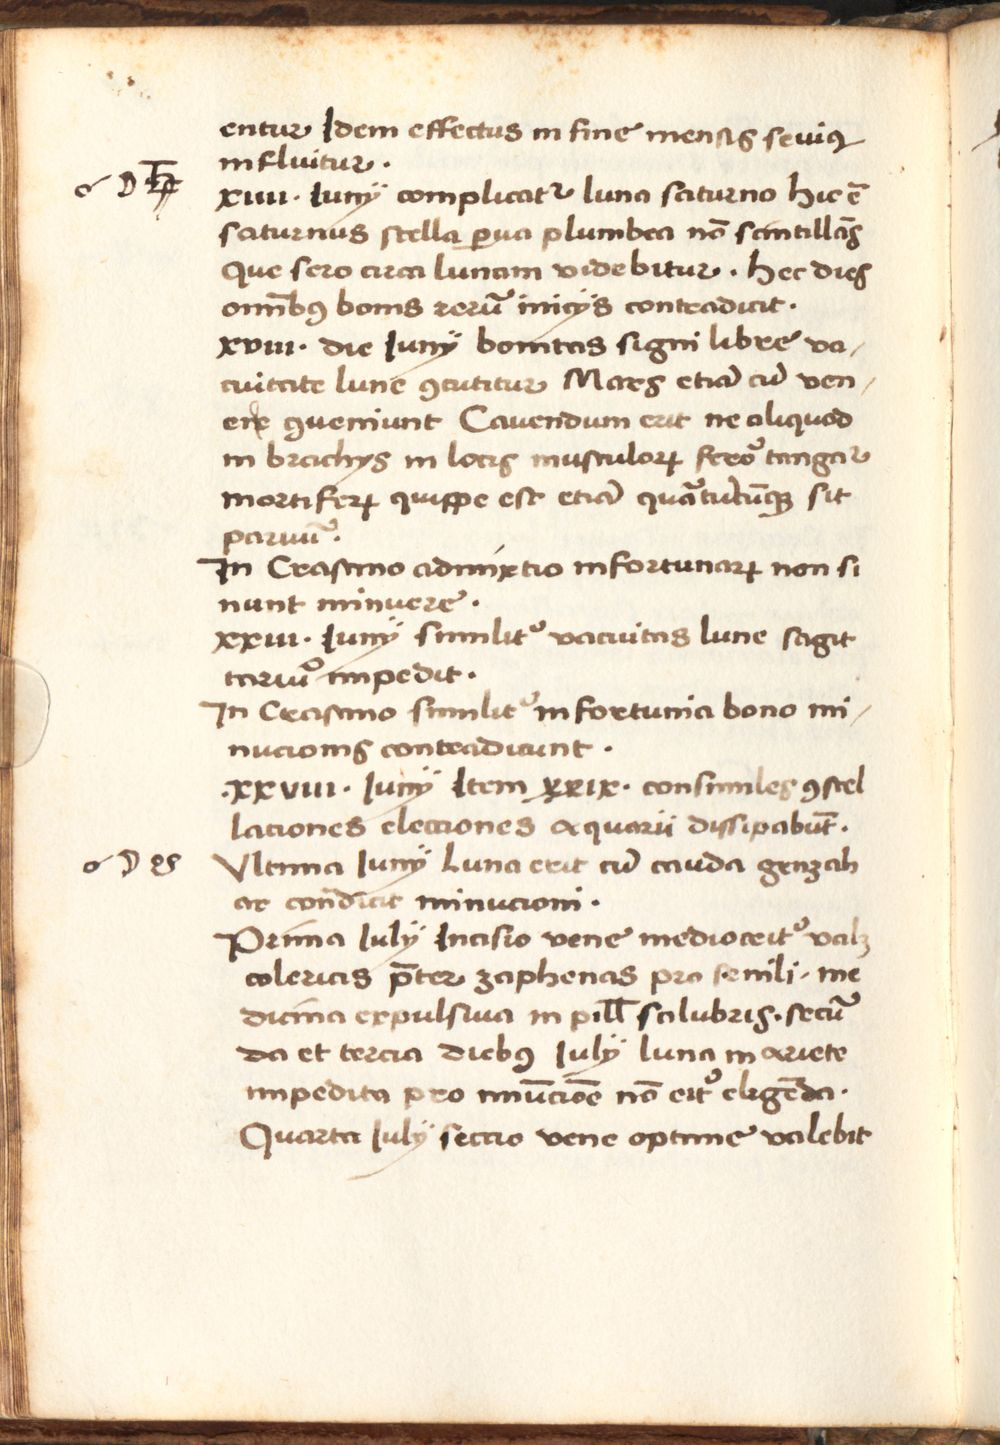 entur Idem effectus in fine mensis seuiq
influitur.
☌ ☽ ♄
xiiii. Iunÿ complicatr luna saturno hic ē
saturnus stella ꝑua plumbea nō scintillās
que sero circa lunam videbitur. hec dies
omībꝰ bonis rerū inicÿs contradicit.
xviii. die Iunÿ bonitas signi libre va/
cuitate lune ꝯcutitur Mars etiā cū ven/
ere ꝯueniunt Cauendum erit ne aliquod
in brachÿs in locis musculoꝝ fero tangar
mortiferꝝ quippe est etiā quātūcūqꝫ sit
paruū.
In Crastino admixtio infortunaꝝ non si
nunt minuere.
xxiii. Iunÿ similit vacuitas lune sagit
tariū impedit.
In Crastino similit infortunia bono mi/
nucionis contradicunt.
.xxviii. Iunÿ Item xxix. consimiles ꝯstel
laciones elecciones aquarii dissipabūt.
☌ ☽ ☋
Vltima Iunÿ Luna erit cū cauda genzah
ar cōndicit minucioni.
Prima Iulÿ Incisio vene mediocrit valꝫ
colericis p̄ter zaphenas pro senili. me
dicina expulsiua in pill̄ salubris. secū
da et tercia diebꝰ Iulÿ luna in ariete
impedita pro minūcōe nō erit eligēda.
Quarta Iulÿ seccio vene optime valebit